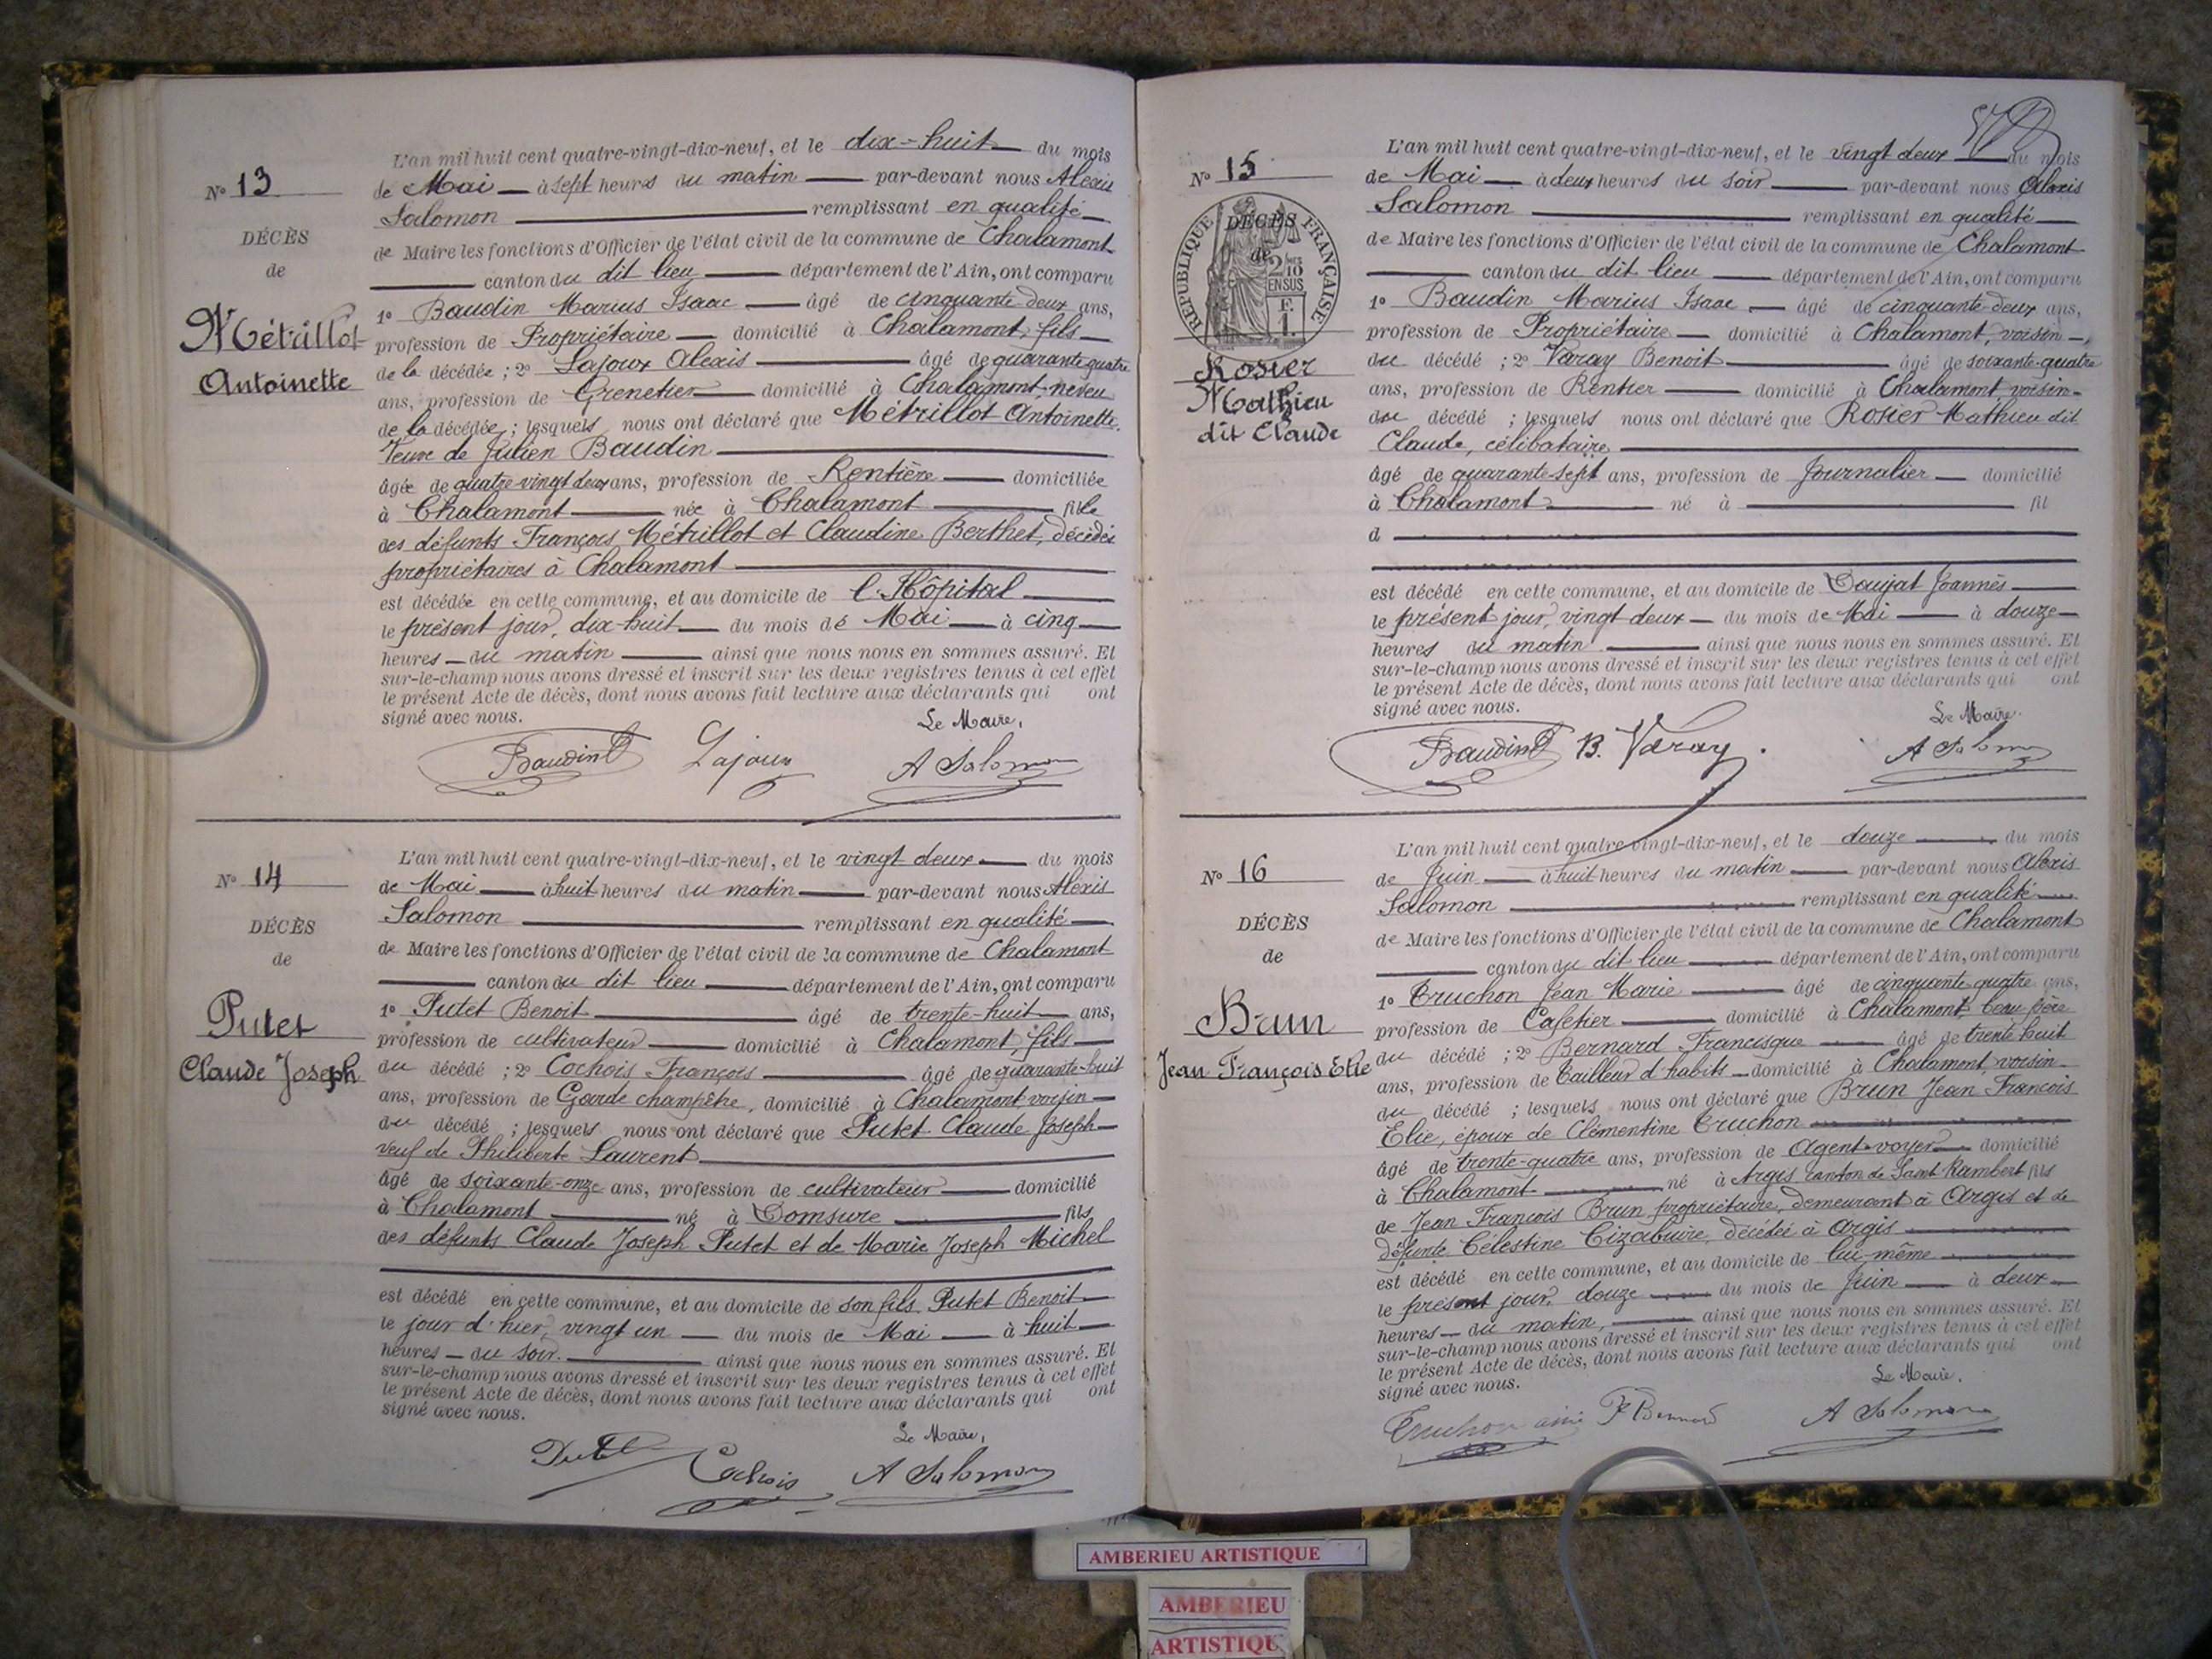 N° 13
DÉCÈS
de
Métrillot
Antoinette
L'an mil huit cent quatre-vingt-dix-neuf, et le dix-huit du mois
de Mai à sept heures du matin par-devant nous Alexis
Salomon remplissant en qualité
de Maire les fonctions d'Officier de l'état civil de la commune de Chalamont
canton du dit lieu département de l'Ain, ont comparu
1° Baudin Marius Isaac âgé de cinquante deux ans,
profession de Propriétaire domicilié à Chalamont, fils
de la décédée ; 2° Lajoux Alexis âgé de quarante quatre
ans, profession de Grenetier domicilié à Chalamont, neveu
de la décédée ; lesquels nous ont déclaré que Métrillot Antoinette,
Veuve de Julien Baudin
âgée de quatre-vingt deux ans, profession de Rentière domiciliée
à Chalamont née à Chalamont fille
des défunts François Métrillot et Claudine Berthet, décédés
propriétaires à Chalamont
est décédée en cette commune, et au domicile de l'Hôpital
le présent jour, dix-huit du mois de Mai à cinq
heures du matin ainsi que nous nous en sommes assuré. Et
sur-le-champ nous avons dressé et inscrit sur les deux registres tenus à cet effet
le présent Acte de décès, dont nous avons fait lecture aux déclarants qui ont
signé avec nous.
Le Maire,
Baudin Lajoux A Salomon
N° 14
DÉCÈS
de
Putet
Claude Joseph
L'an mil huit cent quatre-vingt-dix-neuf, et le vingt deux du mois
de Mai à huit heures du matin par-devant nous Alexis
Salomon remplissant en qualité
de Maire les fonctions d'Officier de l'état civil de la commune de Chalamont
canton du dit lieu département de l'Ain, ont comparu
1° Putet Benoit âgé de trente-huit ans,
profession de cultivateur domicilié à Chalamont, fils
du décédé ; 2° Cochois François âgé de quarante-huit
ans, profession de Garde champêtre, domicilié à Chalamont, voisin
du décédé ; lesquels nous ont déclaré que Putet Claude Joseph
veuf de Philiberte Laurent
âgé de soixante-onze ans, profession de cultivateur domicilié
à Chalamont né à Domsure fils
des défunts Claude Joseph Putet et de Marie Joseph Michel
est décédé en cette commune, et au domicile de son fils Putet Benoit
le jour d'hier, vingt un du mois de Mai à huit
heures du soir. ainsi que nous nous en sommes assuré. Et
sur-le-champ nous avons dressé et inscrit sur les deux registres tenus à cet effet
le présent Acte de décès, dont nous avons fait lecture aux déclarants qui ont
signé avec nous.
Le Maire,
Putet Cochois A Salomon
N° 15
RÉPUBLIQUE FRANÇAISE
DÉCÈS
de
2/10
EN SUS
F.
1.
Rosier
Mathieu
dit Claude
L'an mil huit cent quatre-vingt-dix-neuf, et le vingt deux du mois
de Mai à deux heures du soir par-devant nous Alexis
Salomon remplissant en qualité
de Maire les fonctions d'Officier de l'état civil de la commune de Chalamont
canton du dit lieu département de l'Ain, ont comparu
1° Baudin Marius Isaac âgé de cinquante-deux ans,
profession de Propriétaire domicilié à Chalamont, voisin,
du décédé ; 2° Varay Benoit âgé de soixante-quatre
ans, profession de Rentier domicilié à Chalamont, voisin
du décédé ; lesquels nous ont déclaré que Rosier Mathieu dit
Claude, célibataire
âgé de quarante-sept ans, profession de Journalier domicilié
à Chalamont né à fil
d
est décédé en cette commune, et au domicile de Doujat Joannès
le présent jour, vingt deux du mois de Mai à douze
heures du matin ainsi que nous nous en sommes assuré. Et
sur-le-champ nous avons dressé et inscrit sur les deux registres tenus à cet effet
le présent Acte de décès, dont nous avons fait lecture aux déclarants qui ont
signé avec nous.
Le Maire.
Baudin B. Varay. A Salomon
N° 16
DÉCÈS
de
Brun
Jean François Elie
L'an mil huit cent quatre-vingt-dix-neuf, et le douze du mois
de Juin à huit heures du matin par-devant nous Alexis
Salomon remplissant en qualité
de Maire les fonctions d'Officier de l'état civil de la commune de Chalamont
canton du dit lieu département de l'Ain, ont comparu
1° Truchon Jean Marie âgé de cinquante quatre ans,
profession de Cafetier domicilié à Chalamont beau père
du décédé ; 2° Bernard Francisque âgé de trente huit
ans, profession de Tailleur d'habits domicilié à Chalamont, voisin
du décédé ; lesquels nous ont déclaré que Brun Jean François
Elie, époux de Clémentine Truchon
âgé de trente-quatre ans, profession de Agent-voyer domicilié
à Chalamont né à Argis canton de Saint Rambert fils
de Jean François Brun, propriétaire, demeurant à Argis et de
défunte Célestine décédée à Argis
est décédé en cette commune, et au domicile de lui-même
le présent jour, douze du mois de Juin à deux
heures du matin, ainsi que nous nous en sommes assuré. Et
sur-le-champ nous avons dressé et inscrit sur les deux registres tenus à cet effet
le présent Acte de décès, dont nous avons fait lecture aux déclarants qui ont
signé avec nous.
Le Maire,
Truchon ainé F Bernard A Salomon
AMBERIEU ARTISTIQUE
AMBERIEU
ARTISTIQU